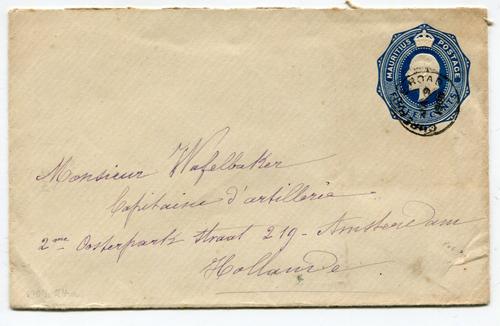 MAURITIUS POSTAGE
FIFTEEN CENTS
Monsieur Wafelbakker
Capitaine d'artillerie
2me Oosterpark Straat 219 - Amsterdam
Hollande